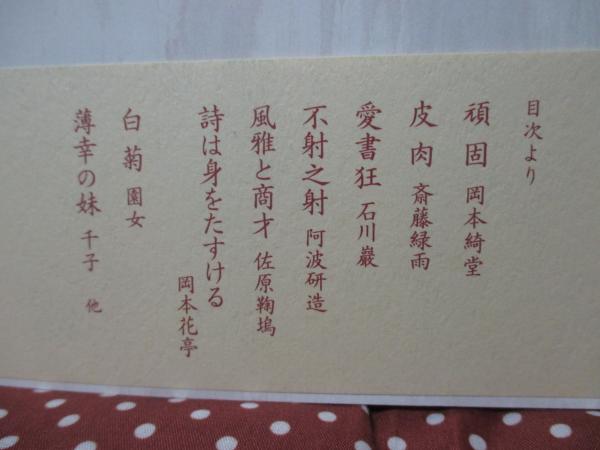 目次より
頑固 岡本綺堂
皮肉 斎藤緑雨
愛書狂 石川巖
不射之射 阿波研造
風雅と商才 佐原鞠塢
詩は身をたすける
岡本花亭
白菊 園女
薄幸の妹 千子 他